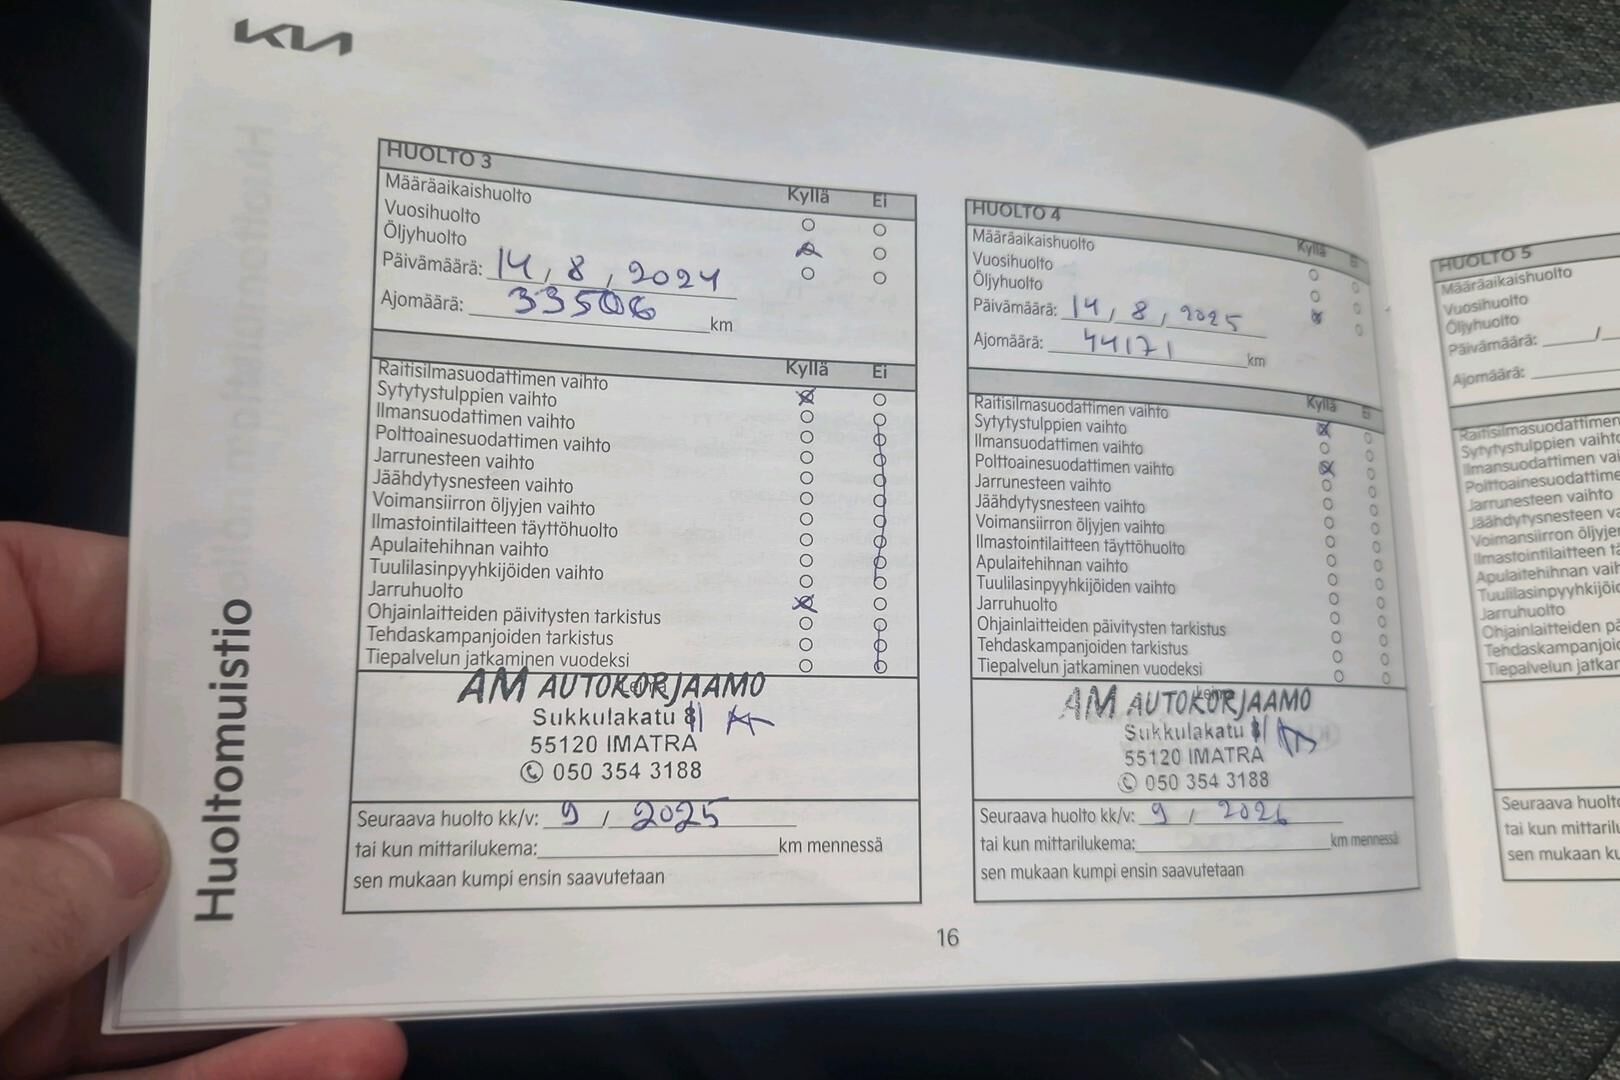 KIA
Huoltomuistio
HUOLTO 3
Kyllä Ei
Määräaikaishuolto
Vuosihuolto
Öljyhuolto
Päivämäärä: 14 / 8 / 2024
Ajomäärä: 33506 km
Kyllä Ei
Raitisilmasuodattimen vaihto
Sytytystulppien vaihto
Ilmansuodattimen vaihto
Polttoainesuodattimen vaihto
Jarrunesteen vaihto
Jäähdytysnesteen vaihto
Voimansiirron öljyjen vaihto
Ilmastointilaitteen täyttöhuolto
Apulaitehihnan vaihto
Tuulilasinpyyhkijöiden vaihto
Jarruhuolto
Ohjainlaitteiden päivitysten tarkistus
Tehdaskampanjoiden tarkistus
Tiepalvelun jatkaminen vuodeksi
AM AUTOKORJAAMO
Sukkulakatu
55120 IMATRA
050 354 3188
Seuraava huolto kk/v: 9 / 2025
tai kun mittarilukema: km mennessä
sen mukaan kumpi ensin saavutetaan
HUOLTO 4
Kyllä Ei
Määräaikaishuolto
Vuosihuolto
Öljyhuolto
Päivämäärä: 14 / 8 / 2025
Ajomäärä: 44171 km
Kyllä Ei
Raitisilmasuodattimen vaihto
Sytytystulppien vaihto
Ilmansuodattimen vaihto
Polttoainesuodattimen vaihto
Jarrunesteen vaihto
Jäähdytysnesteen vaihto
Voimansiirron öljyjen vaihto
Ilmastointilaitteen täyttöhuolto
Apulaitehihnan vaihto
Tuulilasinpyyhkijöiden vaihto
Jarruhuolto
Ohjainlaitteiden päivitysten tarkistus
Tehdaskampanjoiden tarkistus
Tiepalvelun jatkaminen vuodeksi
leima
AM AUTOKORJAAMO
Sukkulakatu
55120 IMATRA
050 354 3188
Seuraava huolto kk/v: 9 / 2026
tai kun mittarilukema: km mennessä
sen mukaan kumpi ensin saavutetaan
16
HUOLTO 5
Määräaikaishuolto
Vuosihuolto
Öljyhuolto
Päivämäärä: /
Ajomäärä:
Raitisilmasuodattimen
Sytytystulppien vaihto
Ilmansuodattimen vai
Polttoainesuodattime
Jarrunesteen vaihto
Jäähdytysnesteen va
Voimansiirron öljyjen
Ilmastointilaitteen tä
Apulaitehihnan vaih
Tuulilasinpyyhkijöid
Jarruhuolto
Ohjainlaitteiden pä
Tehdaskampanjoid
Tiepalvelun jatkar
Seuraava huolto
tai kun mittarilu
sen mukaan ku